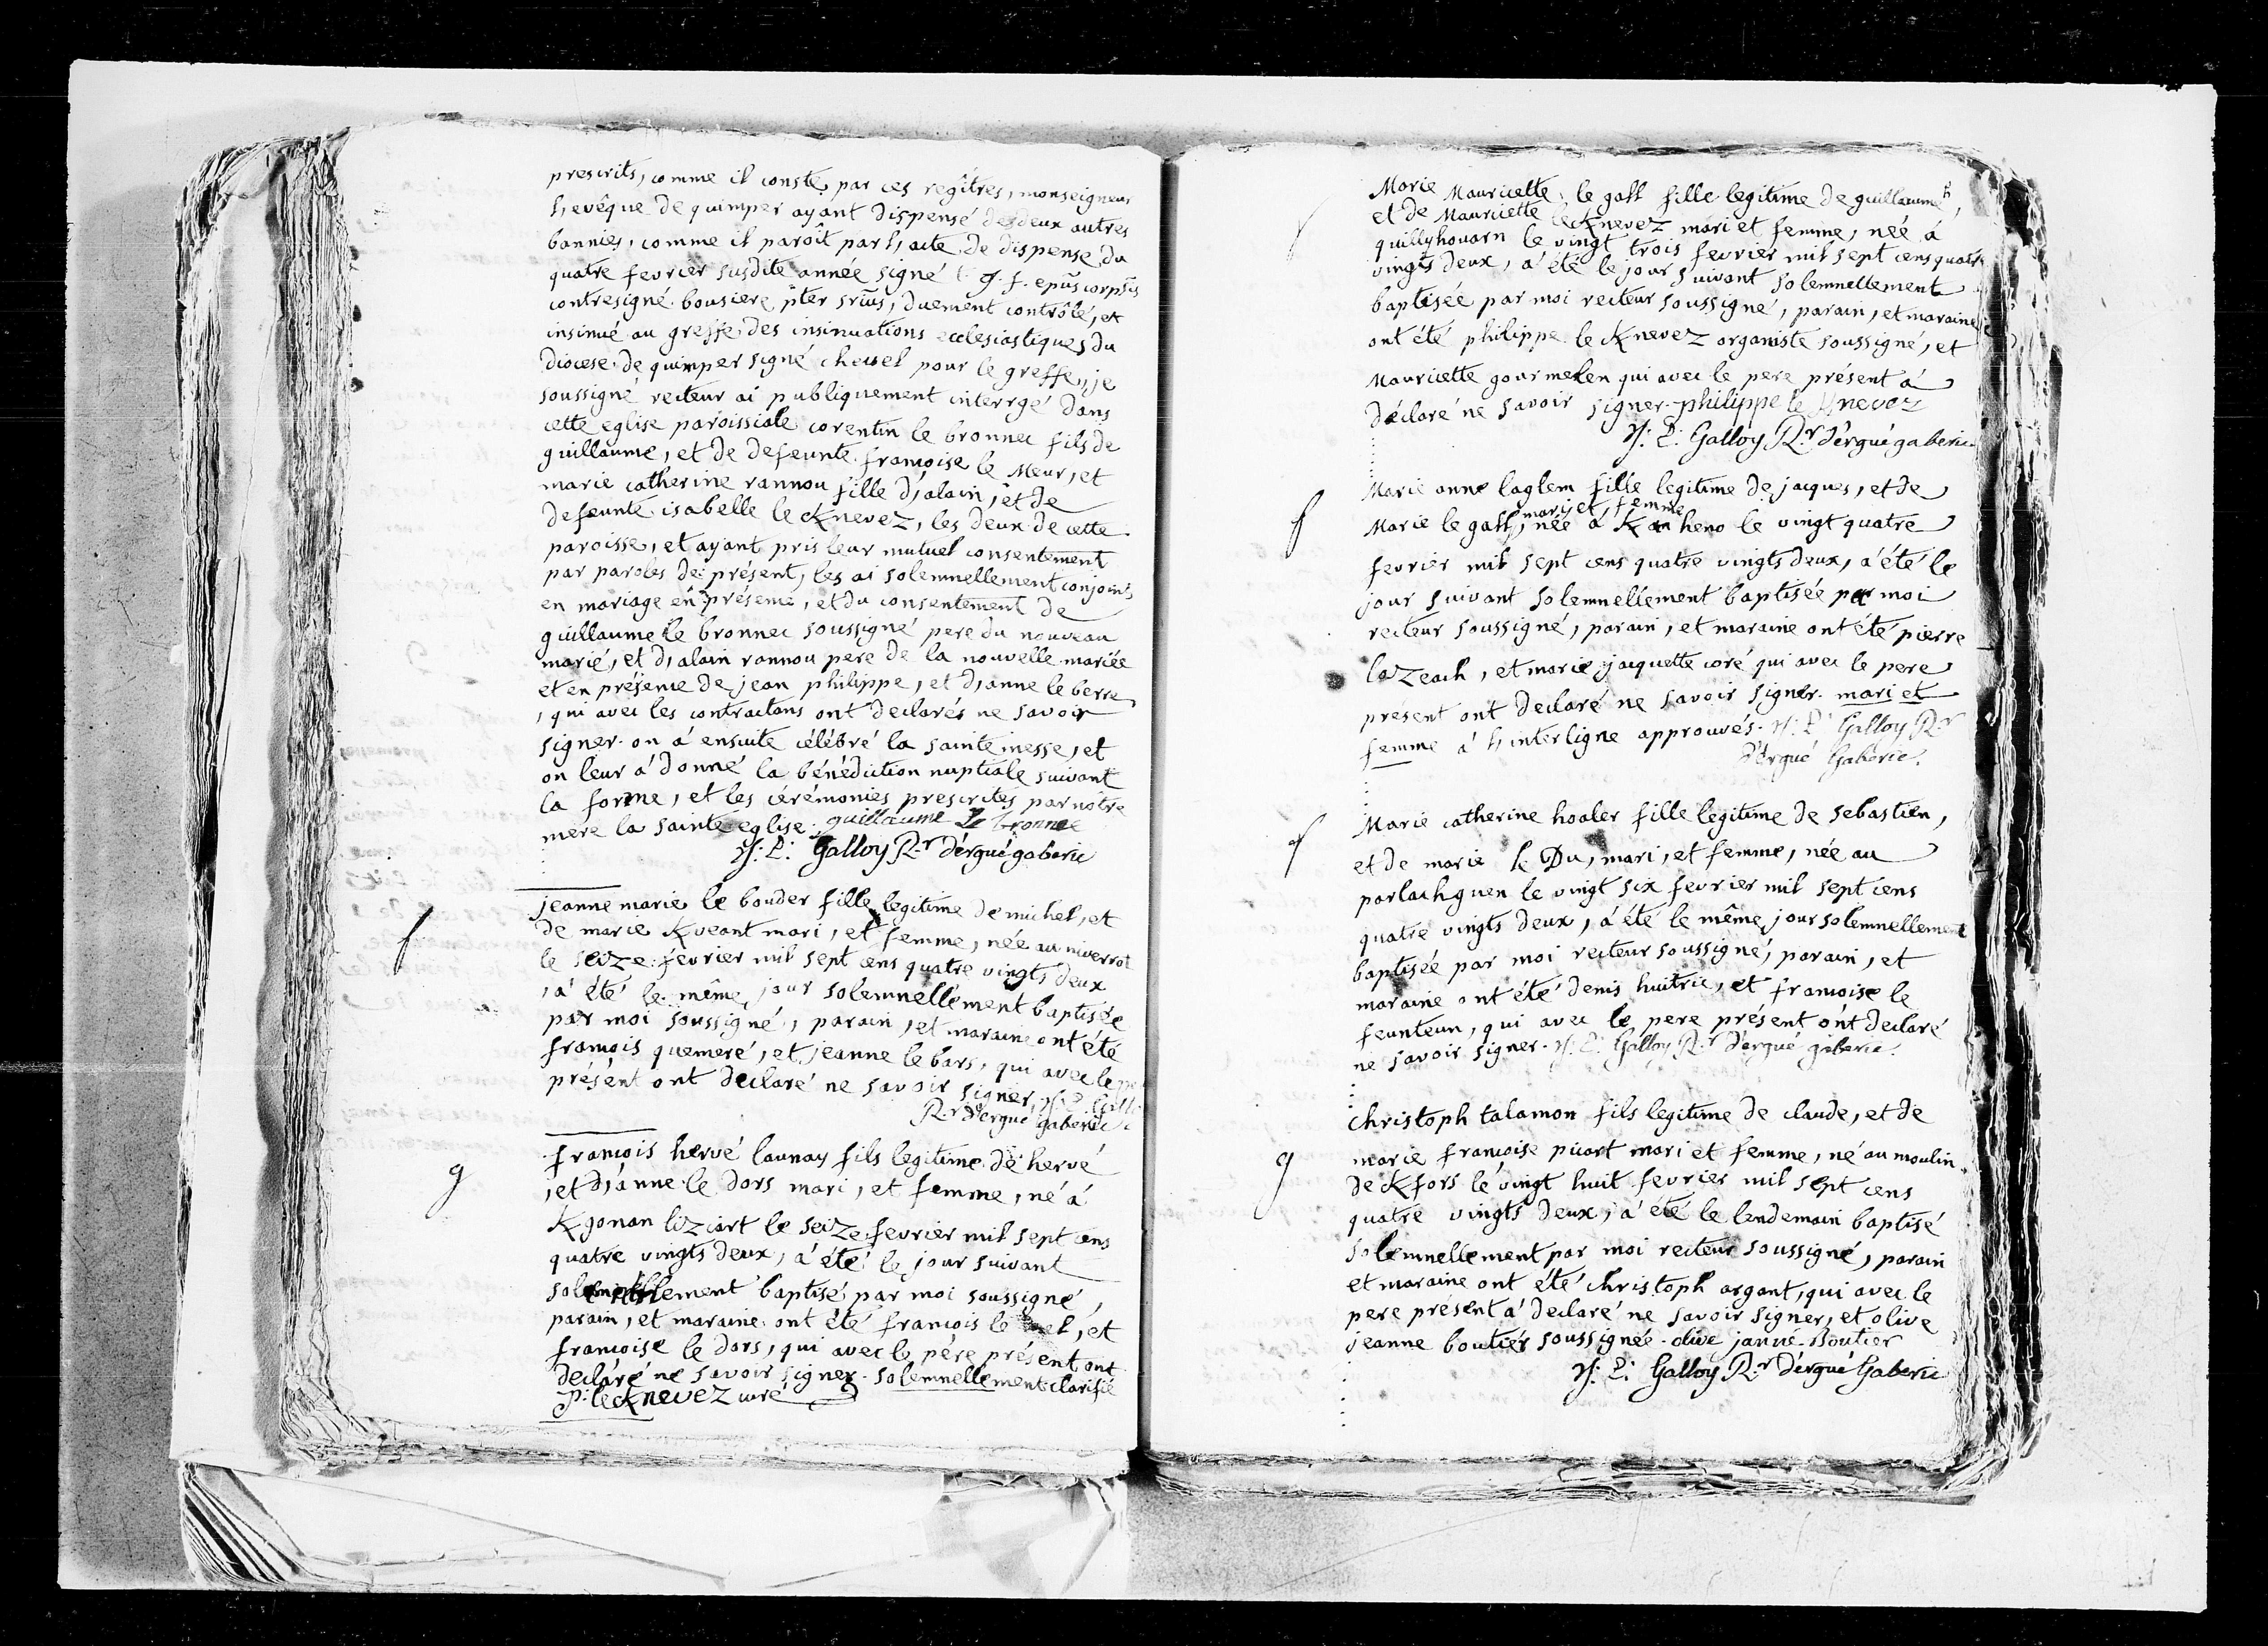 prescrits, comme il conste par ces regîtres, monseigneur
l'evêque de quimper ayant dispensé des deux autres
bannies, comme il paroît par l'acte de dispense du
quatre fevrier susdite année signé
contresigné bousiere pter srius, duement contrôlé, et
insinué au greffe des insinuations ecclesiastiques du
diocese de quimper signé chewel pour le greffe, je
soussigné recteur ai publiquement interrgé dans
cette eglise paroissiale corentin le bronnec fils de
guillaume, et de defeunte françoise le Meur, et
marie catherine rannou fille d'alain, et de
defeunte isabelle le Knevez, les deux de cette
paroisse, et ayant pris leur mutuel consentement
par paroles de présent, les ai solemnellement conjoint
en mariage en présence, et du consentement de
guillaume le bronnec soussigné pere du nouveau
marié, et d'alain rannou pere de la nouvelle mariée
et en présence de jean philippe, et d'anne le berre
, qui avec les contractans ont declarés ne savoir
signer. on á ensuite célébré la sainte messe, et
on leur á donné la bénédiction nuptiale suivant
la forme, et les cérémonies prescrites par nôtre
mere la sainte eglise. guillaume Le bronnec
Galloy R.r d'ergué gaberic
f
jeanne marie le bouder fille legitime de michel, et
de marie Kveant mari, et femme, née au niverrot
le seize fevrier mil sept cens quatre vingts deux
, á été le même jour solemnellement baptisée
par moi soussigné, parain, et maraine ont été
françois quemeré, et jeanne le bars, qui avec le
présent ont declaré ne savoir signer.
R.r d'ergué gaberic
g
françois hervé launay fils legitime de hervé
, et d'anne le dors mari, et femme, né á
Kgonan liziart le seize fevrier mil sept cens
quatre vingts deux, á été le jour suivant
solemnellement baptisé par moi soussigné,
parain, et maraine ont été françois le et
françoise le dors, qui avec le père présent ont
declaré ne savoir signer. solemnellement clarifié
P: le Knevez curé
f
Marie Mauricette le gall fille legitime de guillaume,
et de Mauricette le Knevez mari et femme, née á
quillyhouarn le vingt trois fevrier mil sept cens quatre
vingts deux, á été le jour suivant solemnellement
baptisée par moi recteur soussigné, parain, et maraine
ont été philippe le Knevez organiste soussigné, et
Mauricette gourmelen qui avec le pere présent á
déclaré ne savoir signer. philippe le Knevez
Galloy R.r d'ergué gaberic
f
Marie anne laglem fille legitime de jacques, et de
mari et femme
Marie le gall, née á K an heno le vingt quatre
fevrier mil sept cens quatre vingts deux, á été le
jour suivant solemnellement baptisée par moi
recteur soussigné, parain, et maraine ont été pierre
lozeach, et marie jacquette coré qui avec le pere
présent ont declaré ne savoir signer. mari et
femme á l'interligne approuvés. Galloy R.r
d'ergué Gaberic.
f
Marie catherine hoaler fille legitime de sebastien,
et de marie le Du, mari, et femme, née au
parlachguen le vingt six fevrier mil sept cens
quatre vingts deux, á été le même jour solemnellement
baptisée par moi recteur soussigné, parain, et
maraine ont été denis huitric, et françoise le
feunteun, qui avec le pere présent ont declaré
ne savoir signer. Galloy R.r d'ergué gaberic.
g
christoph talamon fils legitime de claude, et de
marie françoise picart mari et femme, né au moulin
de Kfors le vingt huit fevrier mil sept cens
quatre vingts deux, á été le lendemain baptisé
solemnellement par moi recteur soussigné, parain
et maraine ont été christoph argant, qui avec le
pere présent á declaré ne savoir signer, et olive
jeanne boutier soussignée. olive janne Boutier
Galloy R.r d'ergué Gaberic